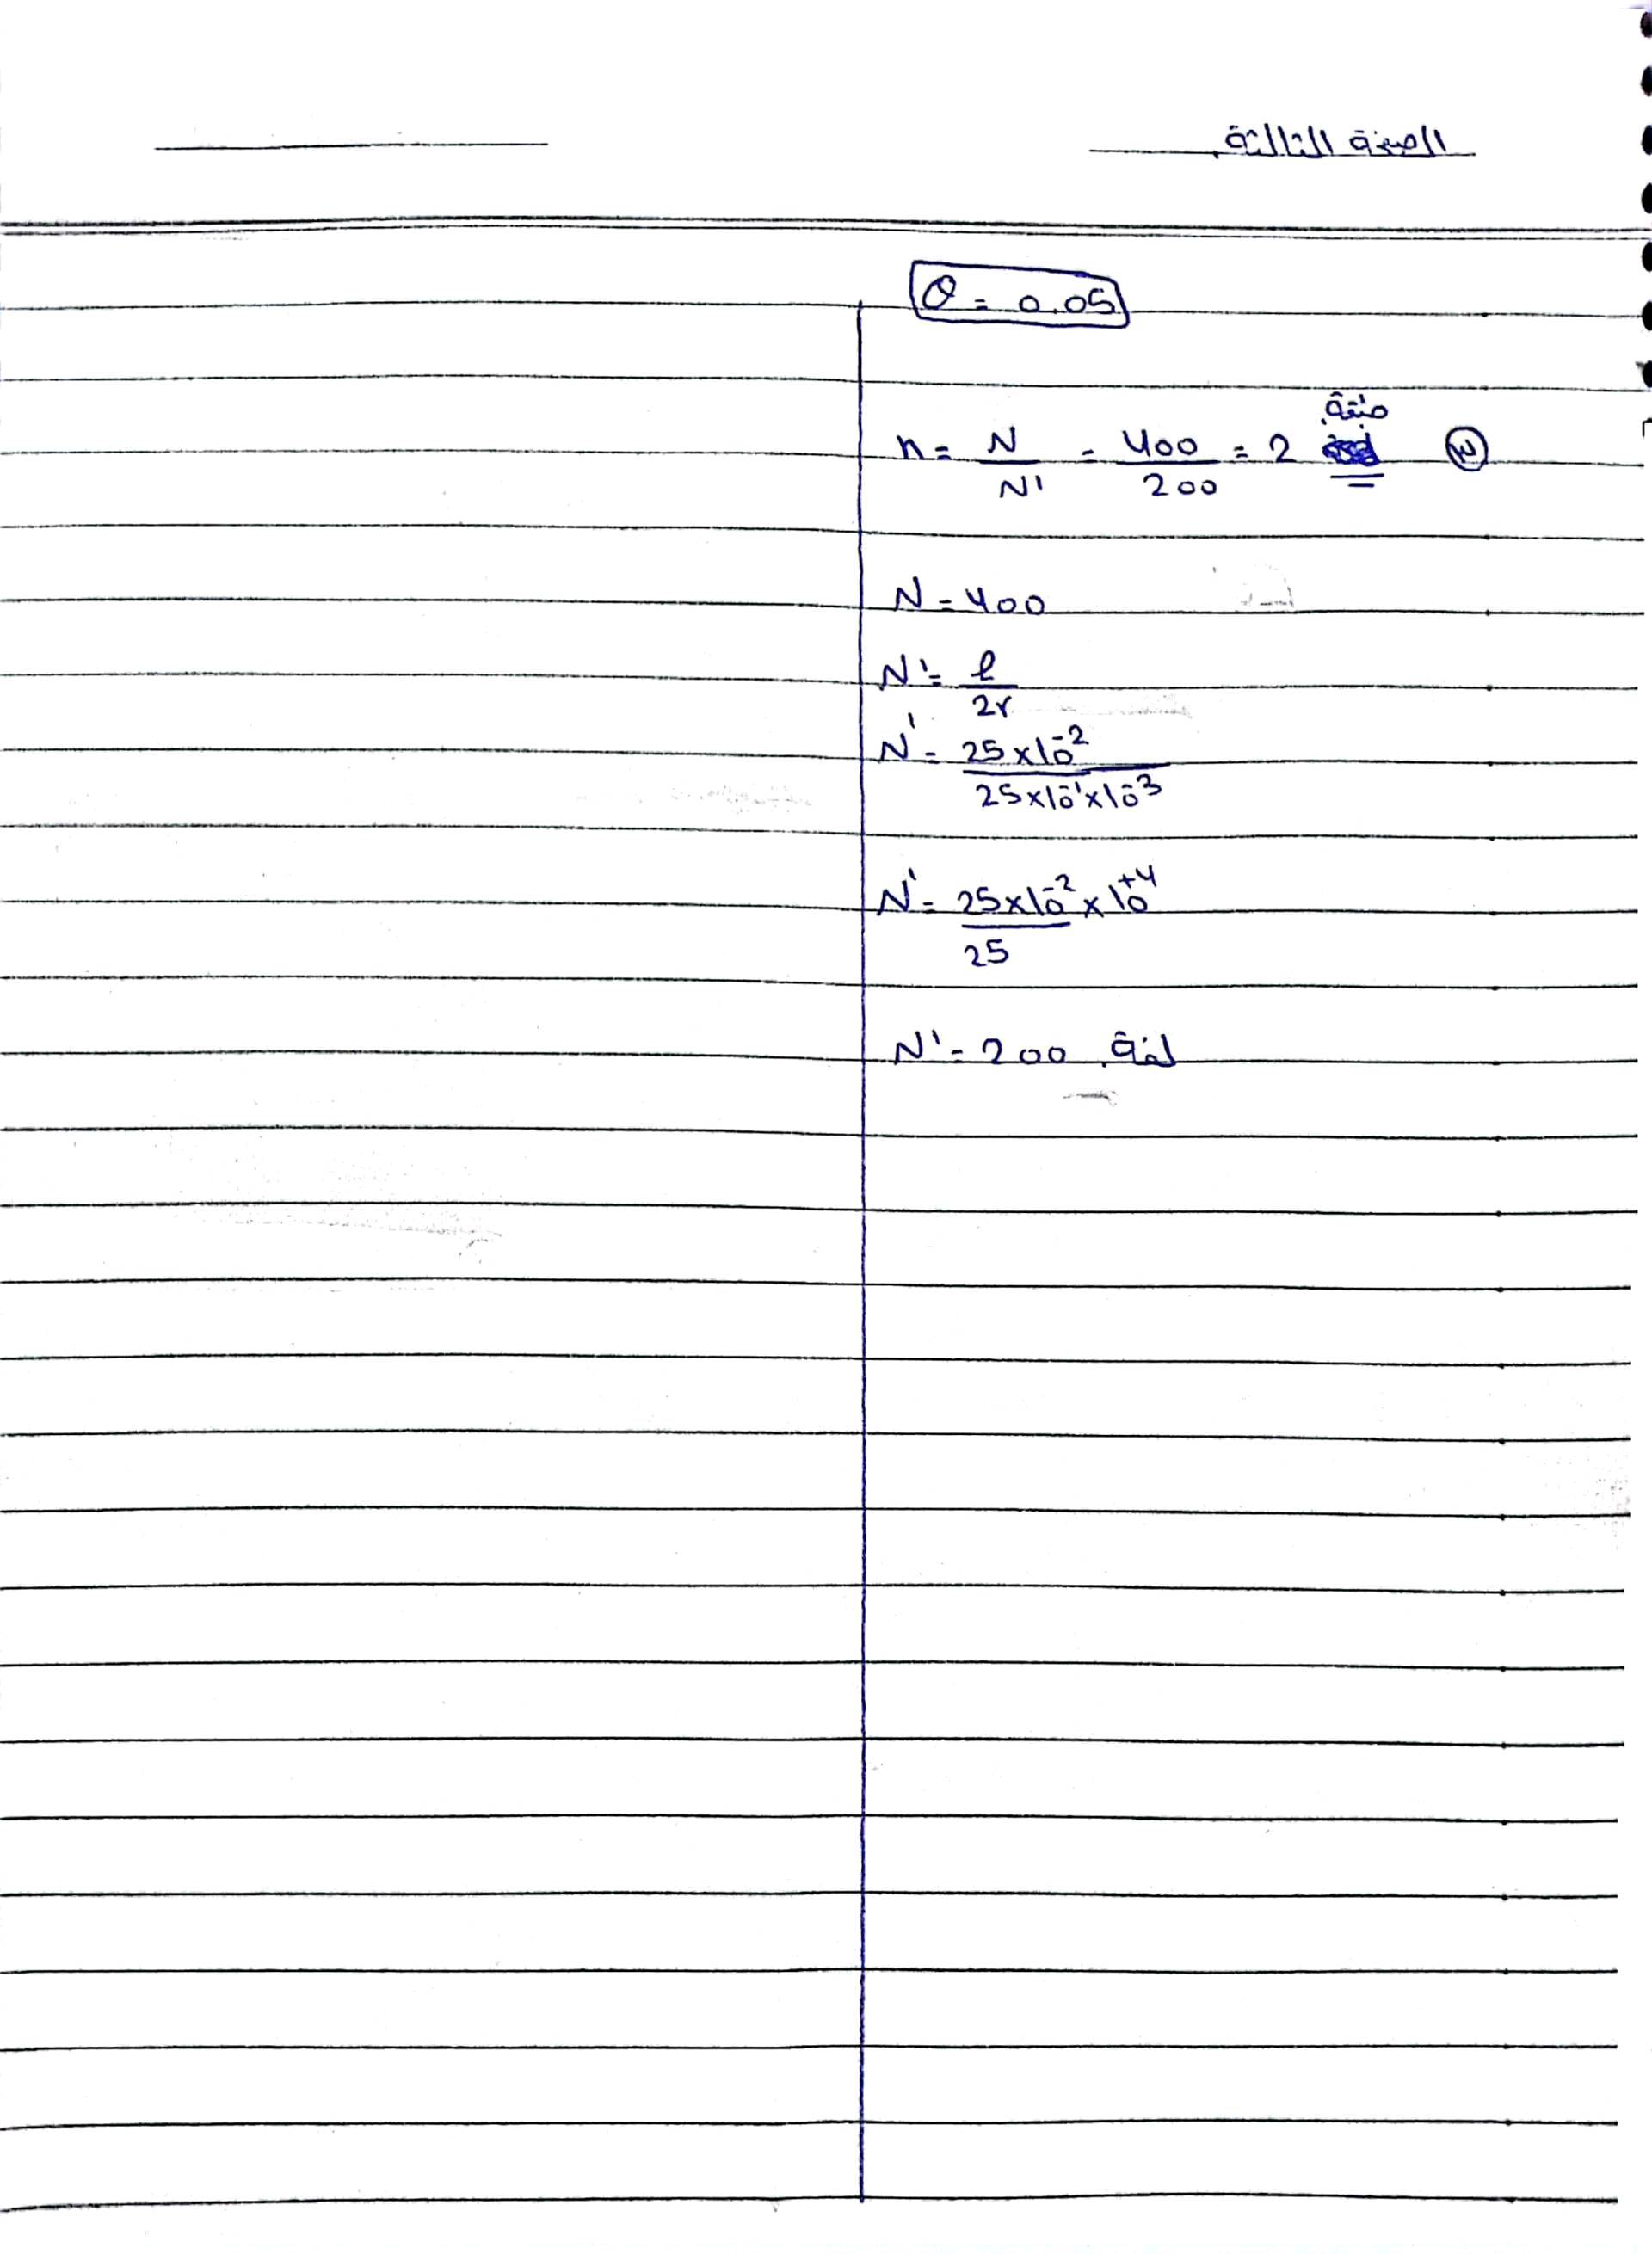 الصفحة الثالثة
θ = 0.05
n = N / N' = 400 / 200 = 2 طبقة ③
N = 400
N' = ℓ / 2r
N' = 25 × 10⁻² / 25 × 10⁻¹ × 10⁻³
N' = 25 × 10⁻² × 10⁺⁴ / 25
N' = 200 لفة